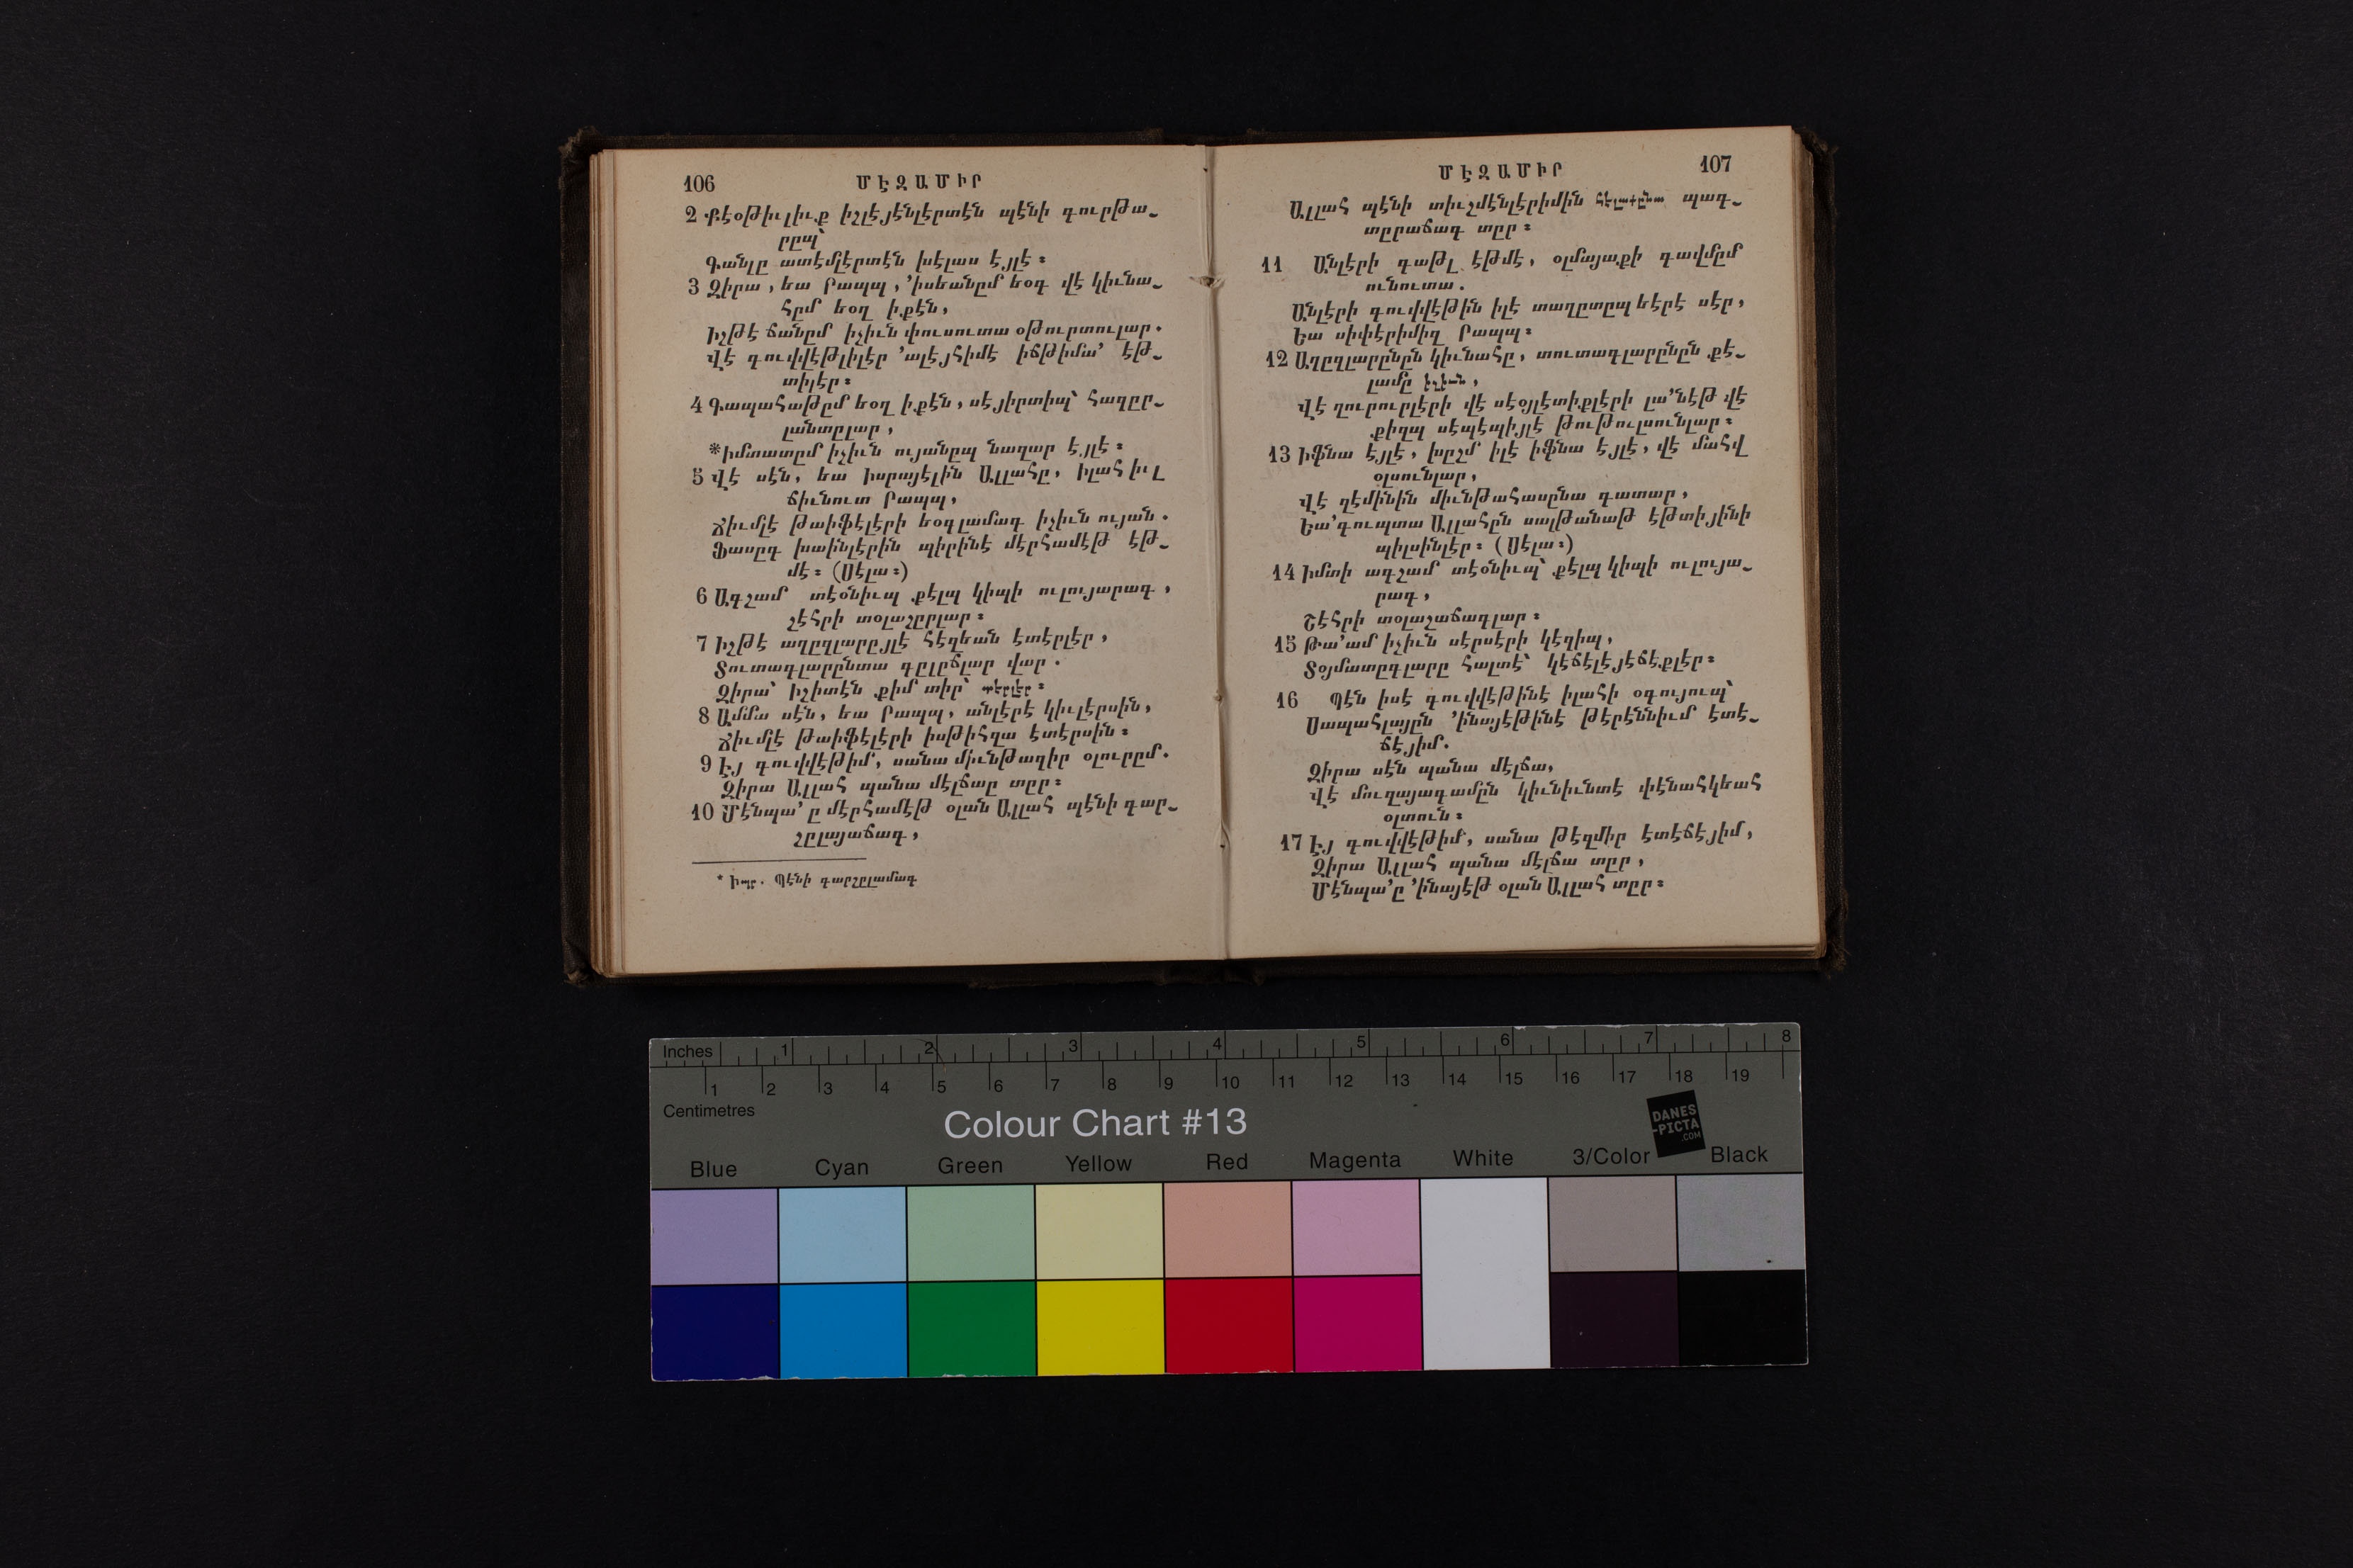 106
ՄԷԶԱՄԻՐ
2 Քէօթիւլիւք իշլէյէնլէրտէն պէնի գուրթա֊
րըպ՝
Գանլը ատէմլէրտէն խէլաս էյլէ։
3 Զիրա, եա Րապպ, ՚իսեանըմ եօգ վէ կիւնա֊
հըմ եօղ իքէն,
Իշթէ ճանըմ իչիւն փուսուտա օթուրտուլար.
Վէ գուվվէթլիլէր ՚ալէյհիմէ իճթիմա՚ էթ֊
տիլէր։
4 Գապահաթըմ եօղ իքէն, սէյիրտիպ՝ հազըր֊
լանտըլար,
*Իմտատըմ իչիւն ույանըպ նազար էյլէ։
5 Վէ սէն, եա Իսրայէլին Ալլահը, Իլահ իւլ
ճիւնուտ Րապպ,
Ճիւմլէ թաիֆէլէրի եօգլամագ իչիւն ույան.
Ֆասըգ խաինլէրին պիրինէ մէրհամէթ էթ֊
մէ։ (Սէլա։)
6 Ագշամ տէօնիւպ քէլպ կիպի ուլույարագ,
շէհրի տօլաշըրլար։
7 Իշթէ աղըզլարըյլէ հէզեան էտէրլէր,
Տուտագլարընտա գըլըճլար վար.
Զիրա՝ Իշիտէն քիմ տիր՝ տէրլէր։
8 Ամմա սէն, եա Րապպ, անլէրէ կիւլէրսին,
Ճիւմլէ թաիֆէլէրի իսթիհզա էտէրսին։
9 Էյ գուվվէթիմ, սանա միւնթազիր օլուրըմ.
Զիրա Ալլահ պանա մէլճաը տըր։
10 Մէնպա՚ը մէրհամէթ օլան Ալլահ պէնի գար֊
շըլայաճագ,
* Իպր. Պէնի գարշըլամագ
107
ՄԷԶԱՄԻՐ
Ալլահ պէնի տիւշմէնլէրիմին հէլաքընա պագ֊
տըրաճագ տըր։
11 Անլէրի գաթլ էթմէ, օլմայաքի գավմըմ
ունուտա.
Անլէրի գուվվէթին իլէ տաղըտըպ եէրէ սէր,
Եա սիփէրիմիզ Րապպ։
12 Աղըզլարընըն կիւնահը, տուտագլարընըն քէ֊
լամը իչիւն,
Վէ ղուրուրլէրի վէ սէօյլէտիքլէրի լա՚նէթ վէ
քիզպ սէպէպիյլէ թութուլսունլար։
13 Իֆնա էյլէ, խըշմ իլէ իֆնա էյլէ, վէ մահվ
օլսունլար,
Վէ զէմինին միւնթահասընա գատար,
Եա՚գուպտա Ալլահըն սալթանաթ էթտիյինի
պիլսինլէր։ (Սէլա։)
14 Իմտի ագշամ տէօնիւպ՝ քէլպ կիպի ուլույա֊
րագ,
Շէհրի տօլաշաճագլար։
15 Թա՚ամ իչիւն սէրսէրի կէզիպ,
Տօյմատըգլարը հալտէ՝ կէճէլէյէճէքլէր։
16 Պէն իսէ գուվվէթինէ իլահի օգույուպ՝
Սապահլայըն ՚ինայէթինէ թէրէննիւմ էտէ֊
ճէյիմ.
Զիրա սէն պանա մէլճա,
Վէ մուզայագամըն կիւնիւնտէ փէնահկեահ
օլտուն։
17 Էյ գուվվէթիմ, սանա թէզմիր էտէճէյիմ,
Զիրա Ալլահ պանա մէլճա տըր,
Մէնպա՚ը ՚ինայէթ օլան Ալլահ տըր։
Inches 1 2 3 4 5 6 7 8
1 2 3 4 5 6 7 8 9 10 11 12 13 14 15 16 17 18 19
Centimetres
Colour Chart #13
DANES
-PICTA
.COM
Blue Cyan Green Yellow Red Magenta White 3/Color Black